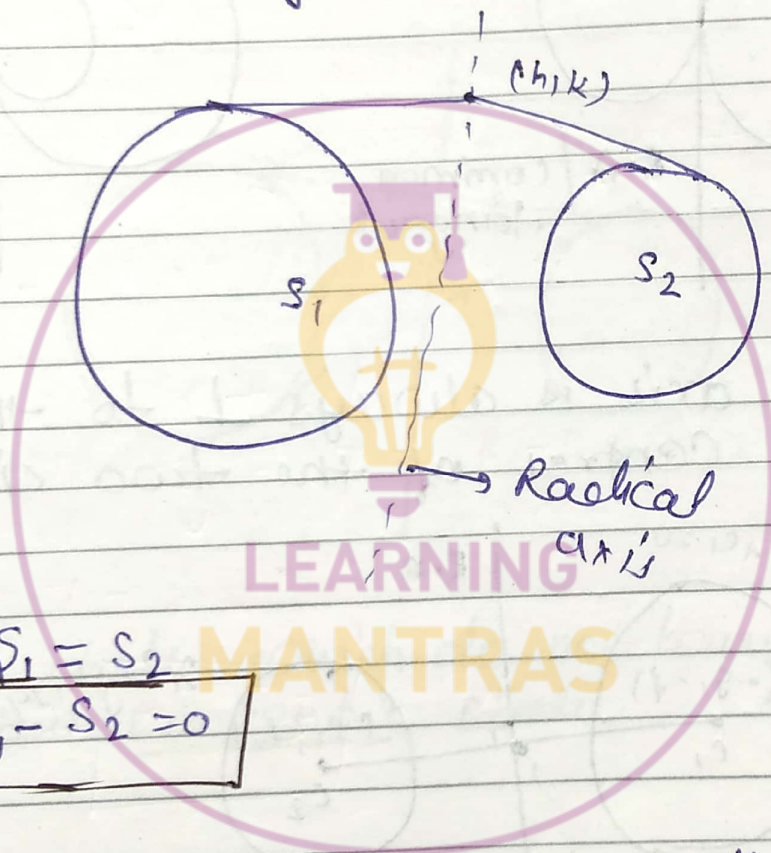 (h,k)
S1
S2
Radical
axis
LEARNING
MANTRAS
S1 = S2
- S2 = 0